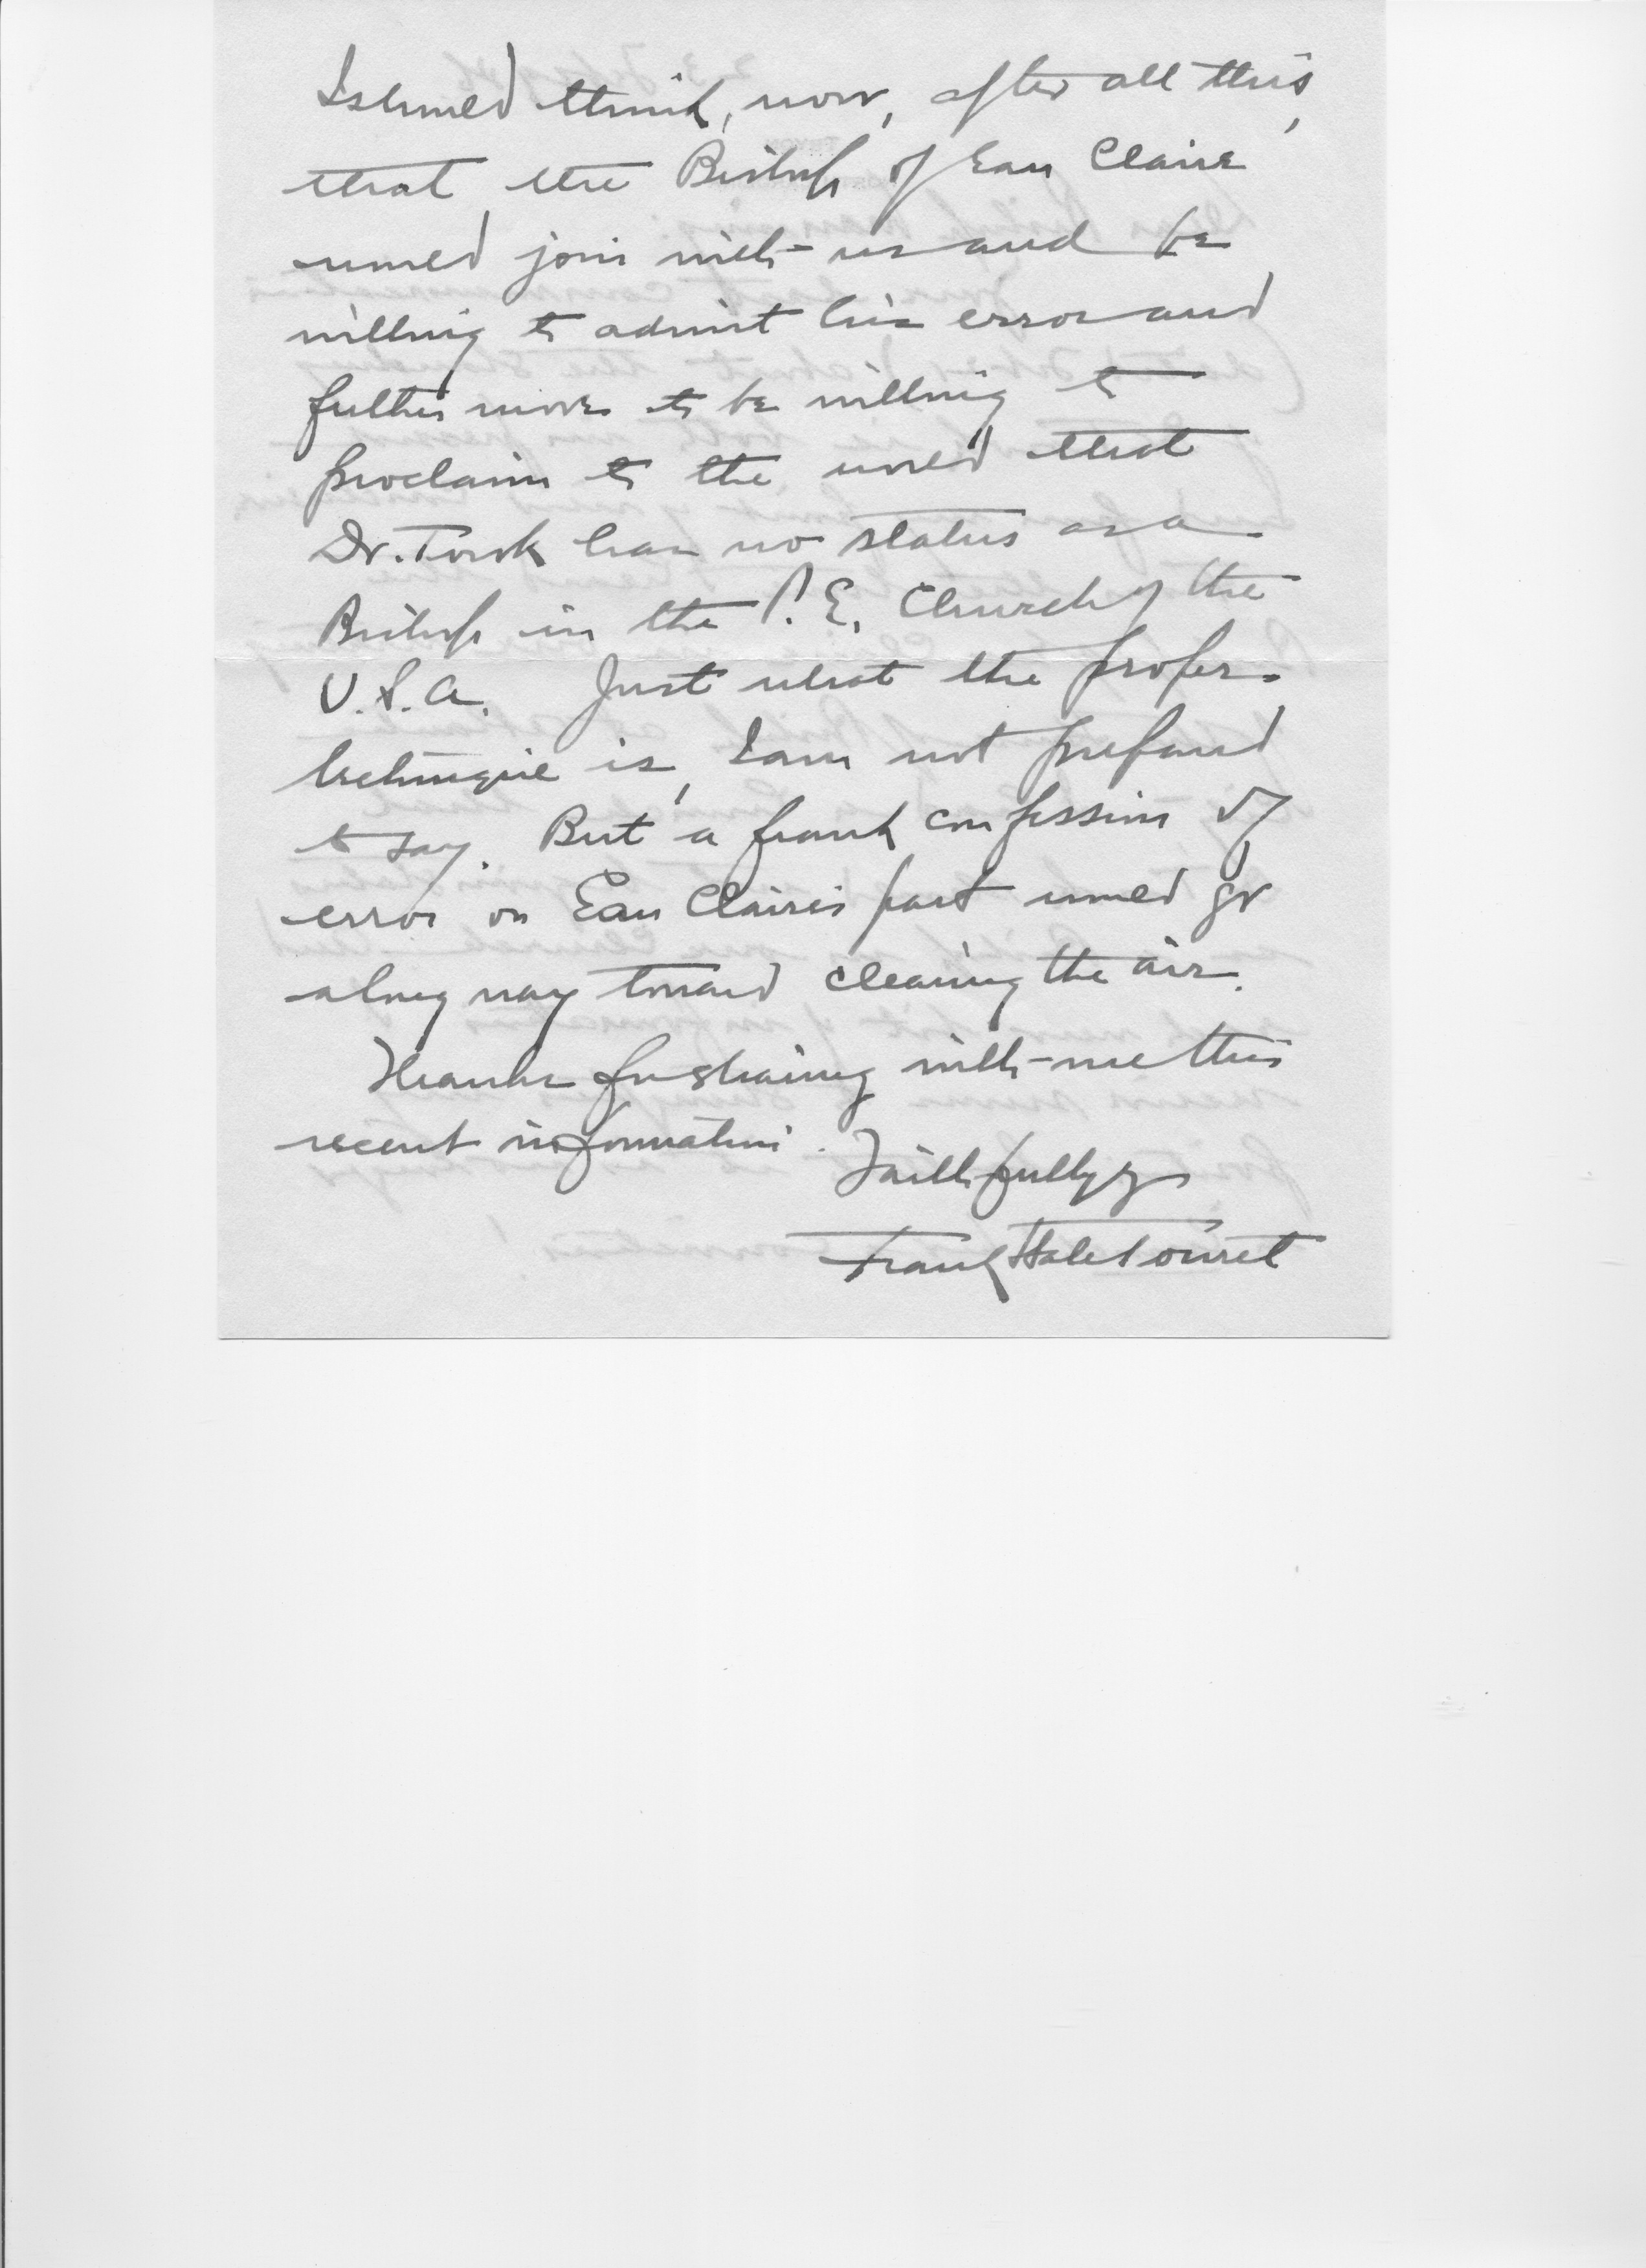 I should think, now, after all this,
that the Bishop of Eau Claire
would join with us and be
willing to admit his error and
further more to be willing to
proclaim to the world that
Dr. Torok has no status as a
Bishop in the P. E. Church of the
U.S.A. Just what the proper
technique is, I am not prepared
to say. But a frank confession of
error on Eau Claire's part would go
a long way toward clearing the air.
Thanks for sharing with me this
recent information.
Faithfully yrs
Frank Hale Touret